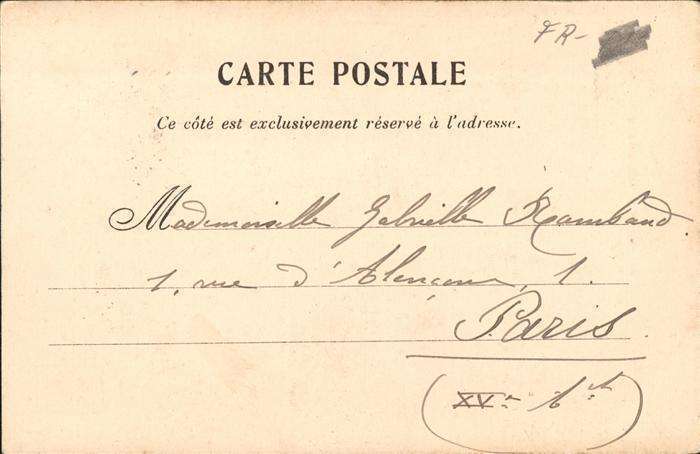 FR-
CARTE POSTALE
Ce côté est exclusivement réservé à l'adresse.
Mademoiselle Gabrielle Rambaud
1, rue d'Alençon, 1.
Paris
(XVe At)